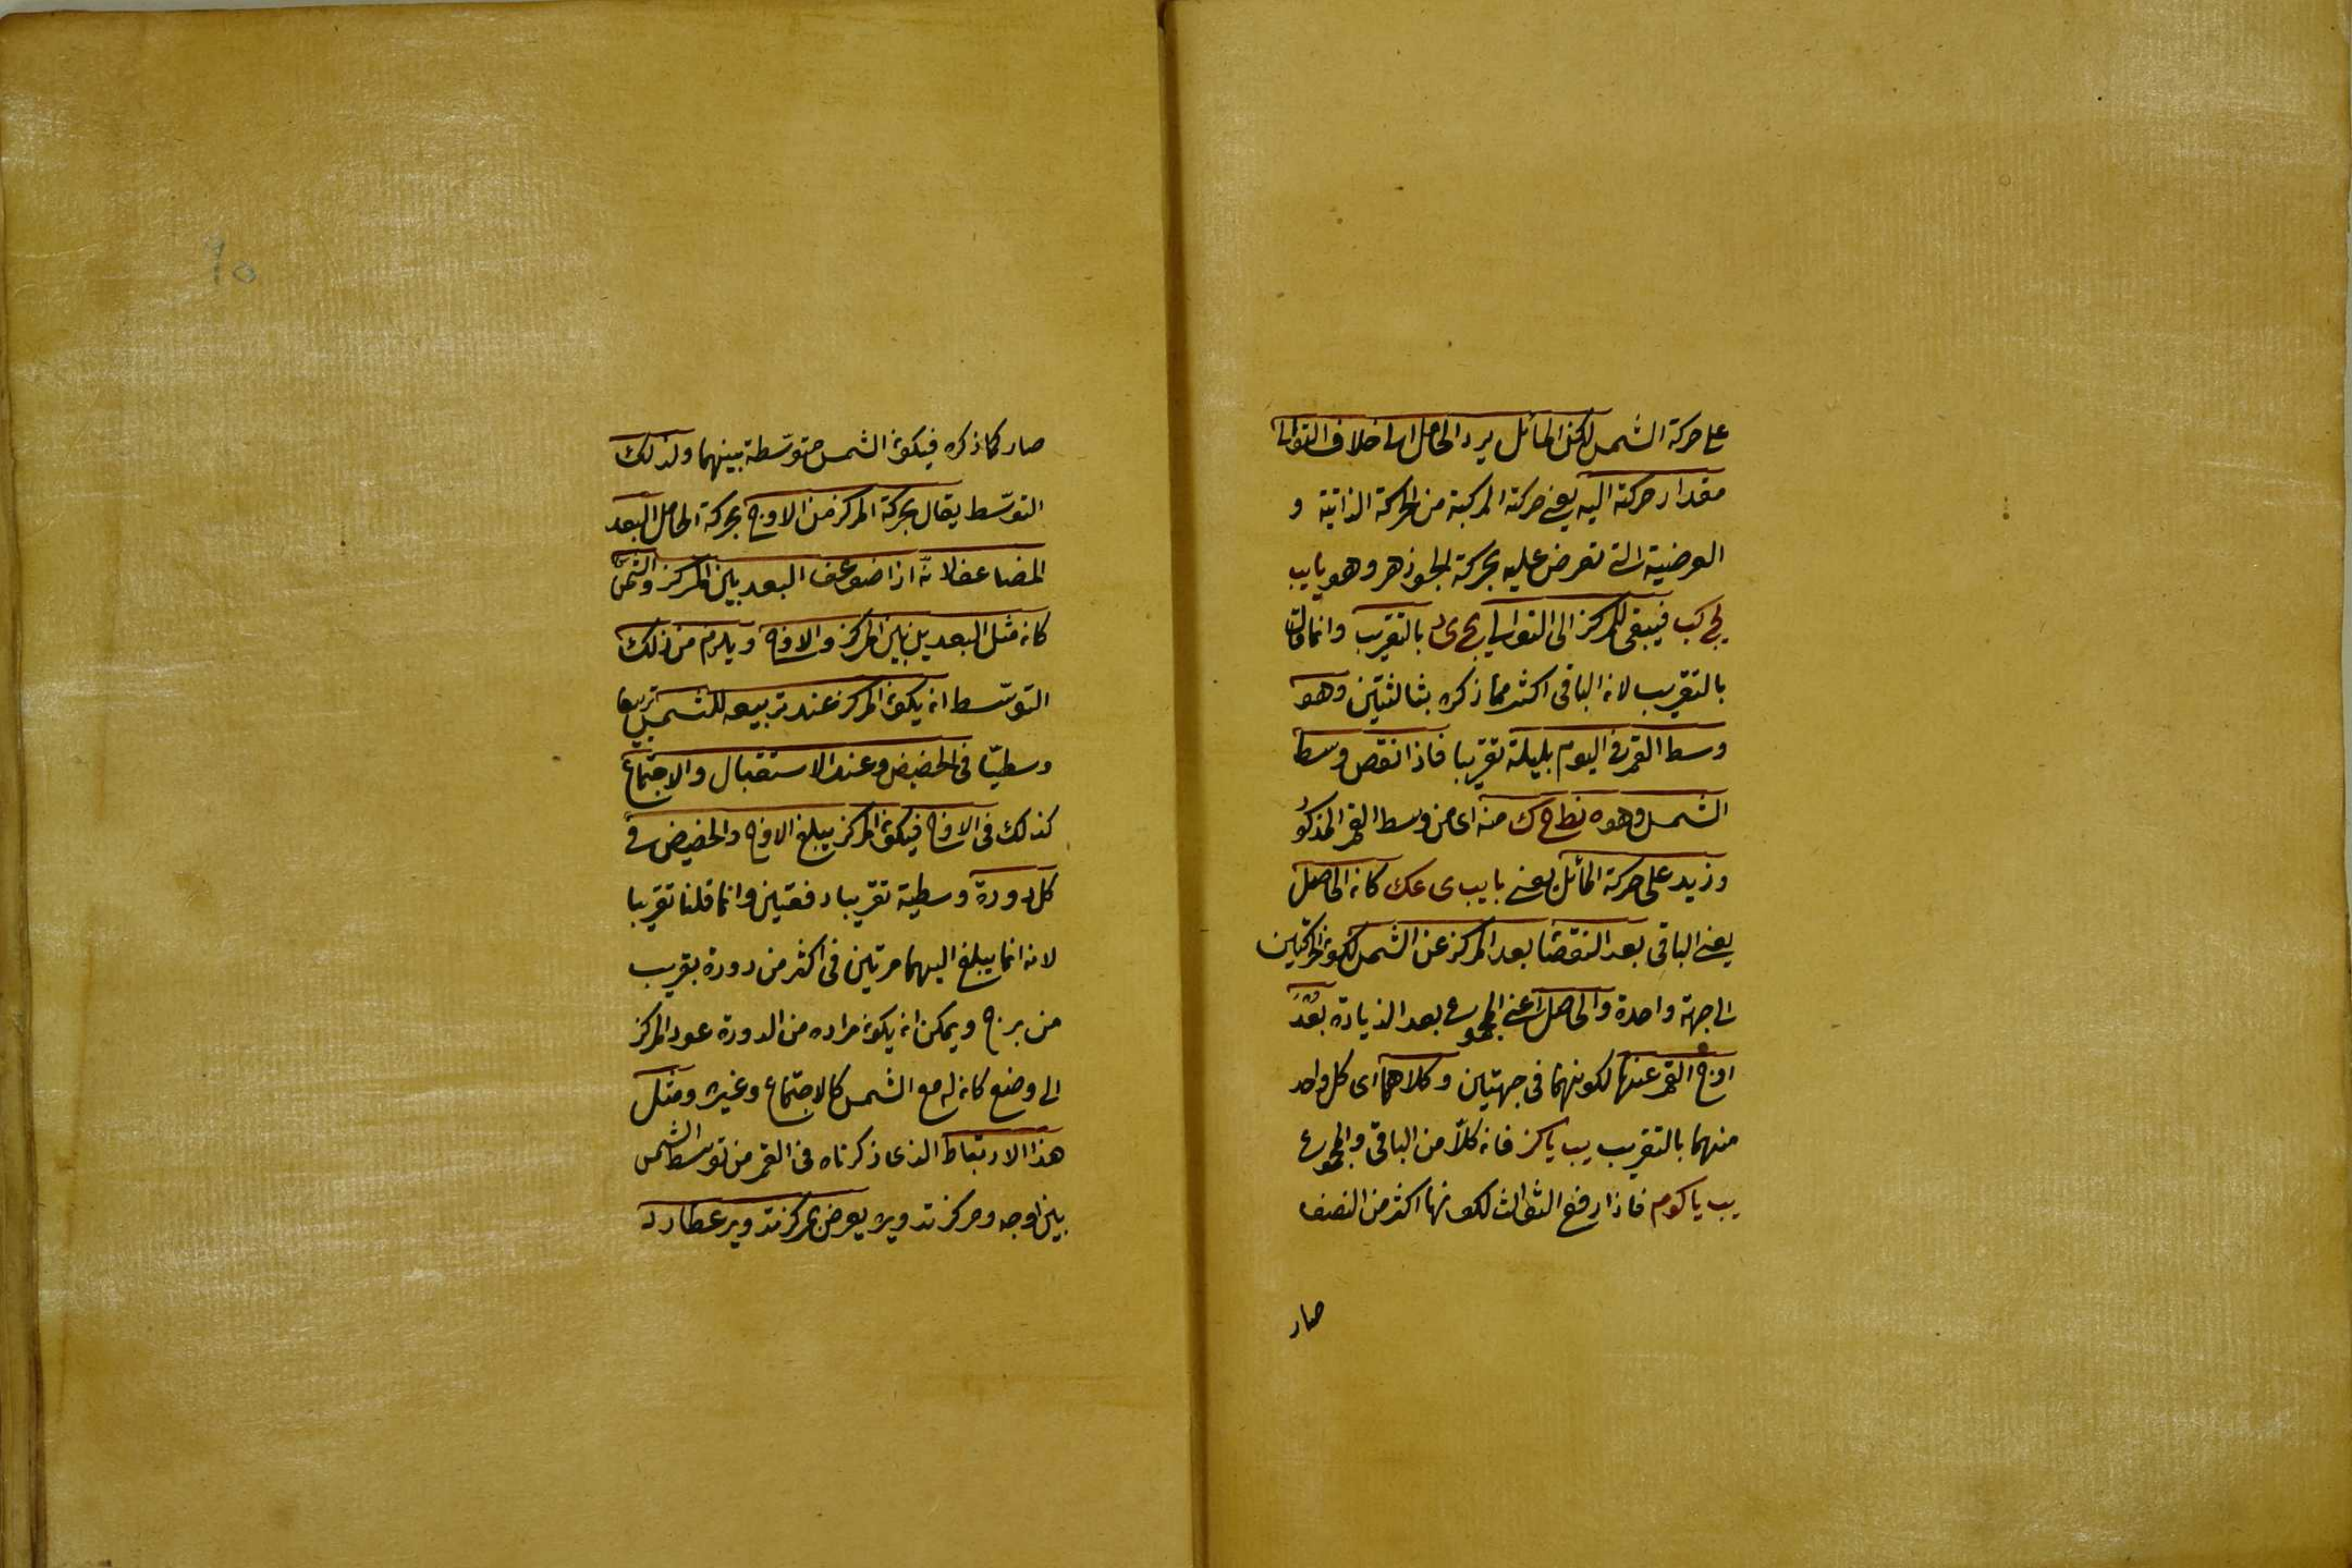 على حركة الشمس لكن المائل يرد الحامل الى خلاف التوالى
مقدار حركته اليه يعنى حركته المركبة من الحركة الذاتية و
العرضية التى تعرض عليه بحركة الجوزهر وهو يا يب
يح كب فيبقى للمركز الى التوالى يح ى لد بالتقريب وانما قال
بالتقريب لانه الباقى اكثر مما ذكره بثالثتين وهو
وسط القمر فى اليوم بليلة تقريبا فاذا نقص وسط
الشمس وهو ه نط ح ك منه اى من وسط القمر المذكور
وزيد على حركة المائل يعنى يا يب ى عك كانه الحاصل
يعنى الباقى بعد النقصا بعد المركز عن الشمس لكون الحركتين
الى جهة واحدة والحاصل اعنى المجموع بعد الزيادة بعد
اوج القمر عنها لكونهما فى جهتين وكلاهما اى كل واحد
منهما بالتقريب يب يا كز فانه كلاّ من الباقى والمجموع
يب يا كو م فاذا رفع الثوالث لكونها اكثر من النصف
صار
٦٥
صار كما ذكره فيكون الشمس متوسّطة بينهما ولذلك
التوسّط يقال بحركة المركز من الاوج بحركة الحامل البعد
المضاعف لانّه اذا ضوعف البعد بين المركز والشمس
كانه مثل البعد بين المركز والاوج ويلزم من ذلك
التوسّط انه يكون المركز عند تربيعه للشمس تربيعا
وسطيّا فى الحضيض وعند الاستقبال والاجتماع
كذلك فى الاوج فيكون المركز يبلغ الاوج والحضيض فى
كل دورة وسطية تقريبا دفعتين وانما قلنا تقريبا
لانه انما يبلغ اليهما مرتين فى اكثر من دورة بقريب
من برج ويمكن انه يكون مراده من الدورة عود المركز
الى وضع كانه له مع الشمس كالاجتماع وغيره ومثل
هذا الارتباط الذى ذكرناه فى القمر من توسط الشمس
بين اوجه ومركز تدويره يعرض لمركز تدوير عطارد